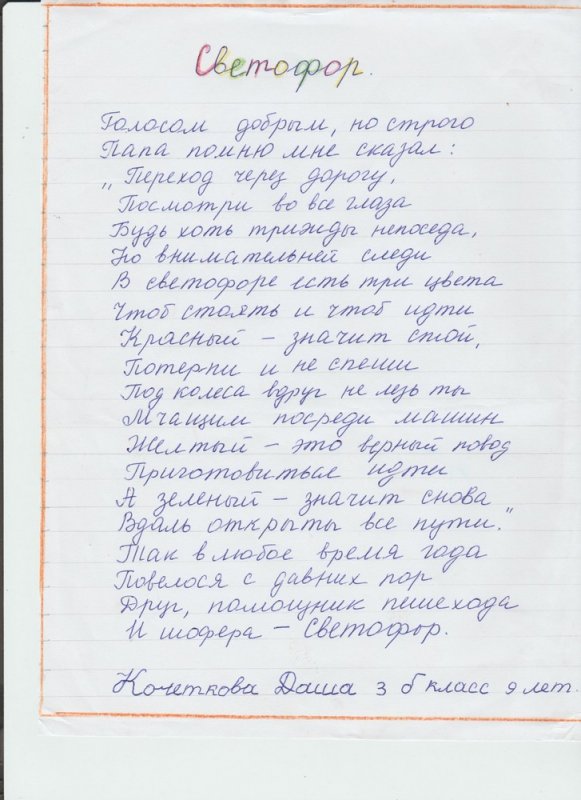 Светофор.
Голосом добрым, но строго
Папа помню мне сказал:
„Переход через дорогу,
Посмотри во все глаза
Будь хоть трижды непоседа,
Но внимательней следи
В светофоре есть три цвета
Чтоб стоять и чтоб идти
Красный – значит стой,
Потерпи и не спеши
Под колеса вдруг не лезь ты
Мчащим посреди машин
Желтый – это верный повод
Приготовиться идти
А зеленый – значит снова
Вдаль открыты все пути."
Так в любое время года
Повелося с давних пор
Друг, помощник пешехода
И шофера – Светофор.
Кочеткова Даша 3 б класс 9 лет.